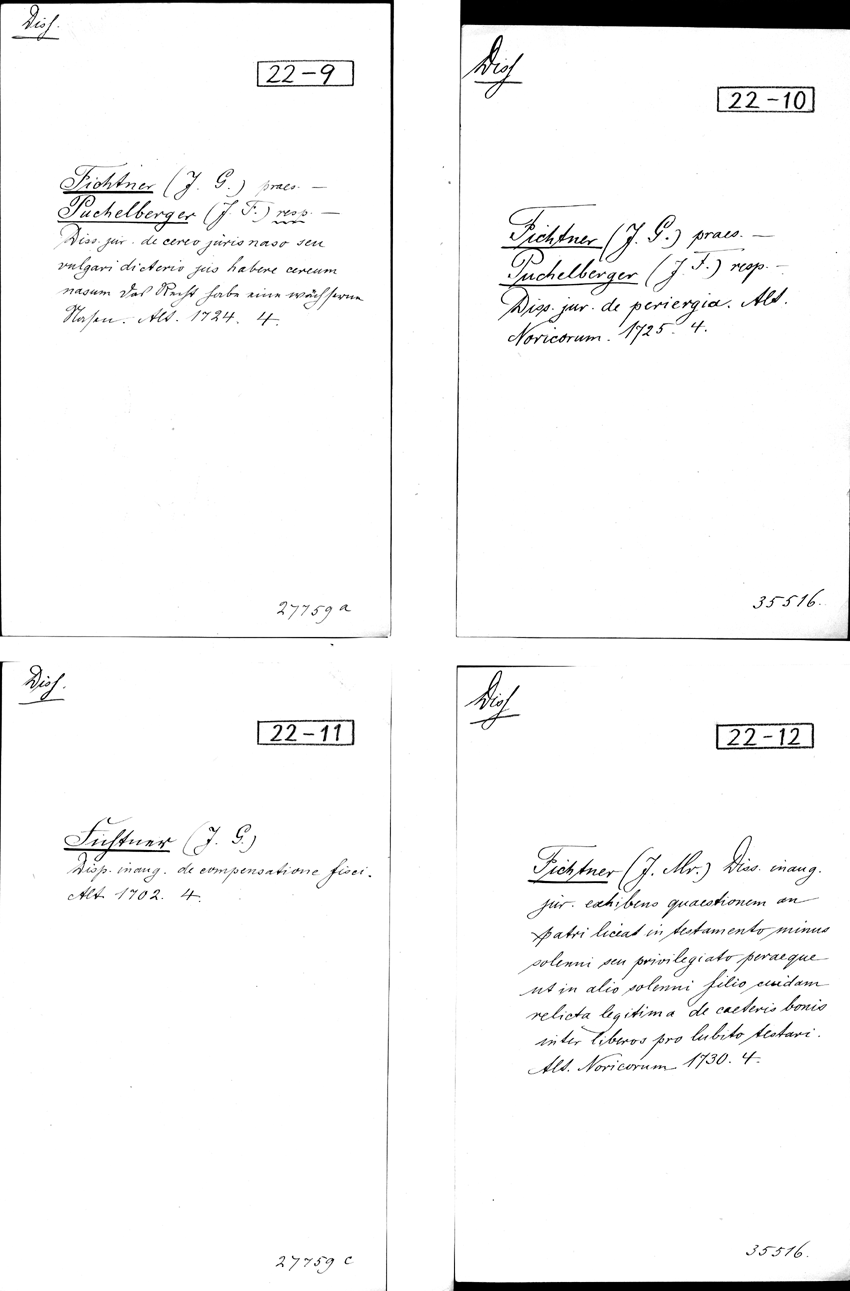 Diss.
22-9
Fichtner (J. G.) praes. —
Puchelberger (J. F.) resp. —
Diss. jur. de cereo juris naso seu
vulgari dicterio jus habere cereum
nasum das Recht habe eine wächserne
Nasen. Alt. 1724. 4.
27759 a
Diss
22-10
Fichtner (J. G.) praes. —
Puchelberger (J. F.) resp. —
Diss. jur. de periergia. Alt.
Noricorum. 1725. 4.
35516.
Diss.
22-11
Fichtner (J. G.)
Disp. inaug. de compensatione fisci.
Alt. 1702. 4.
27759 c
Diss
22-12
Fichtner (J. Mr.) Diss. inaug.
jur. exhibens quaestionem an
patri liceat in testamento minus
solenni seu privilegiato peraeque
ut in alio solenni filio cuidam
relicta legitima de caeteris bonis
inter liberos pro lubito testari.
Alt. Noricorum 1730. 4.
35516.